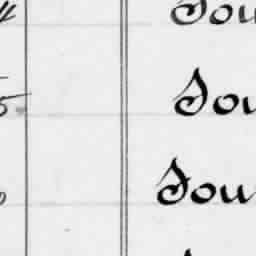 4 Sou
5 Sou
Sou